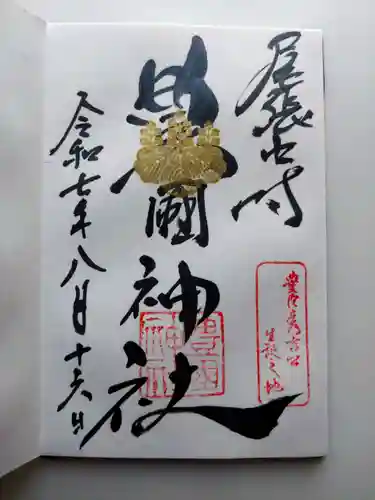 尾張中村
豊國神社
豊臣秀吉公
生誕之地
令和七年八月十六日